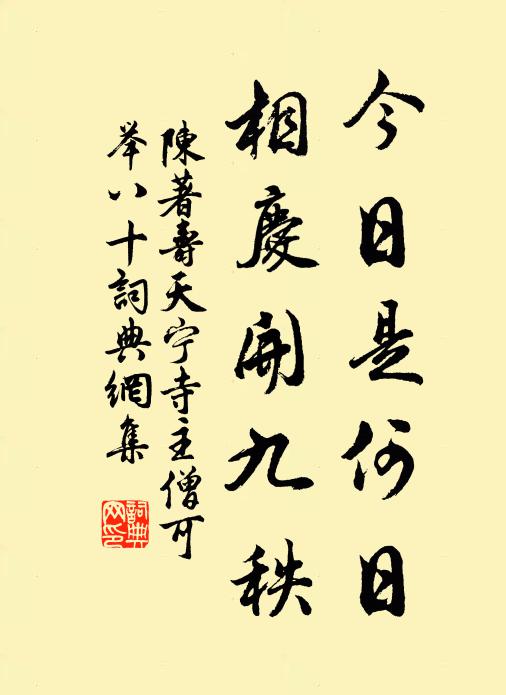 今日是何日
相慶開九秩
陳著壽天宁寺主僧可
举八十詞典網集
詞典
网印